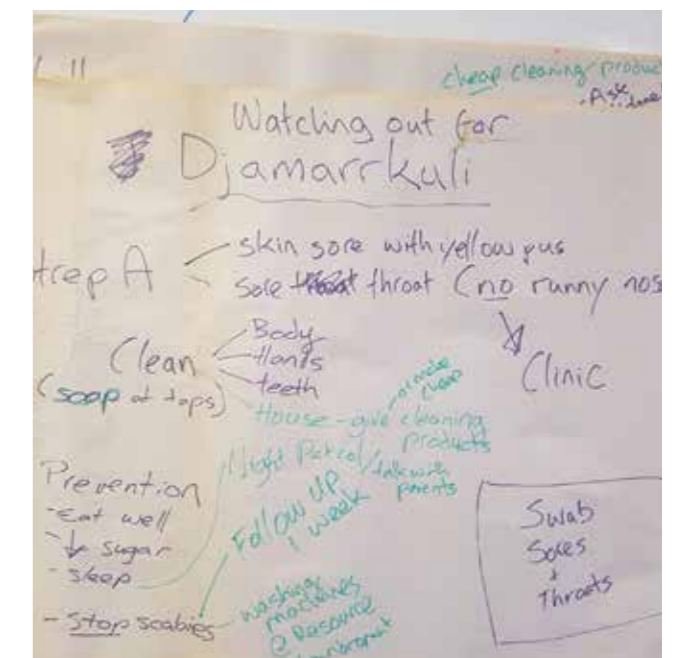 11
cheap cleaning produc
- Ask
Watching out for
Djamarrkuli
trep A
- skin sore with yellow pus
sore throat (no runny nos
Clinic
Clean
- Body
- Hands
- teeth
(soap at taps)
House - give cleaning products
or make cheap
Night Patrol / talk with parents
Prevention
- Eat well
- ↓ sugar
- sleep
- Stop scabies
Follow up 1 week
washing machines
@ Rasource
Swab
Sores
+
Throats